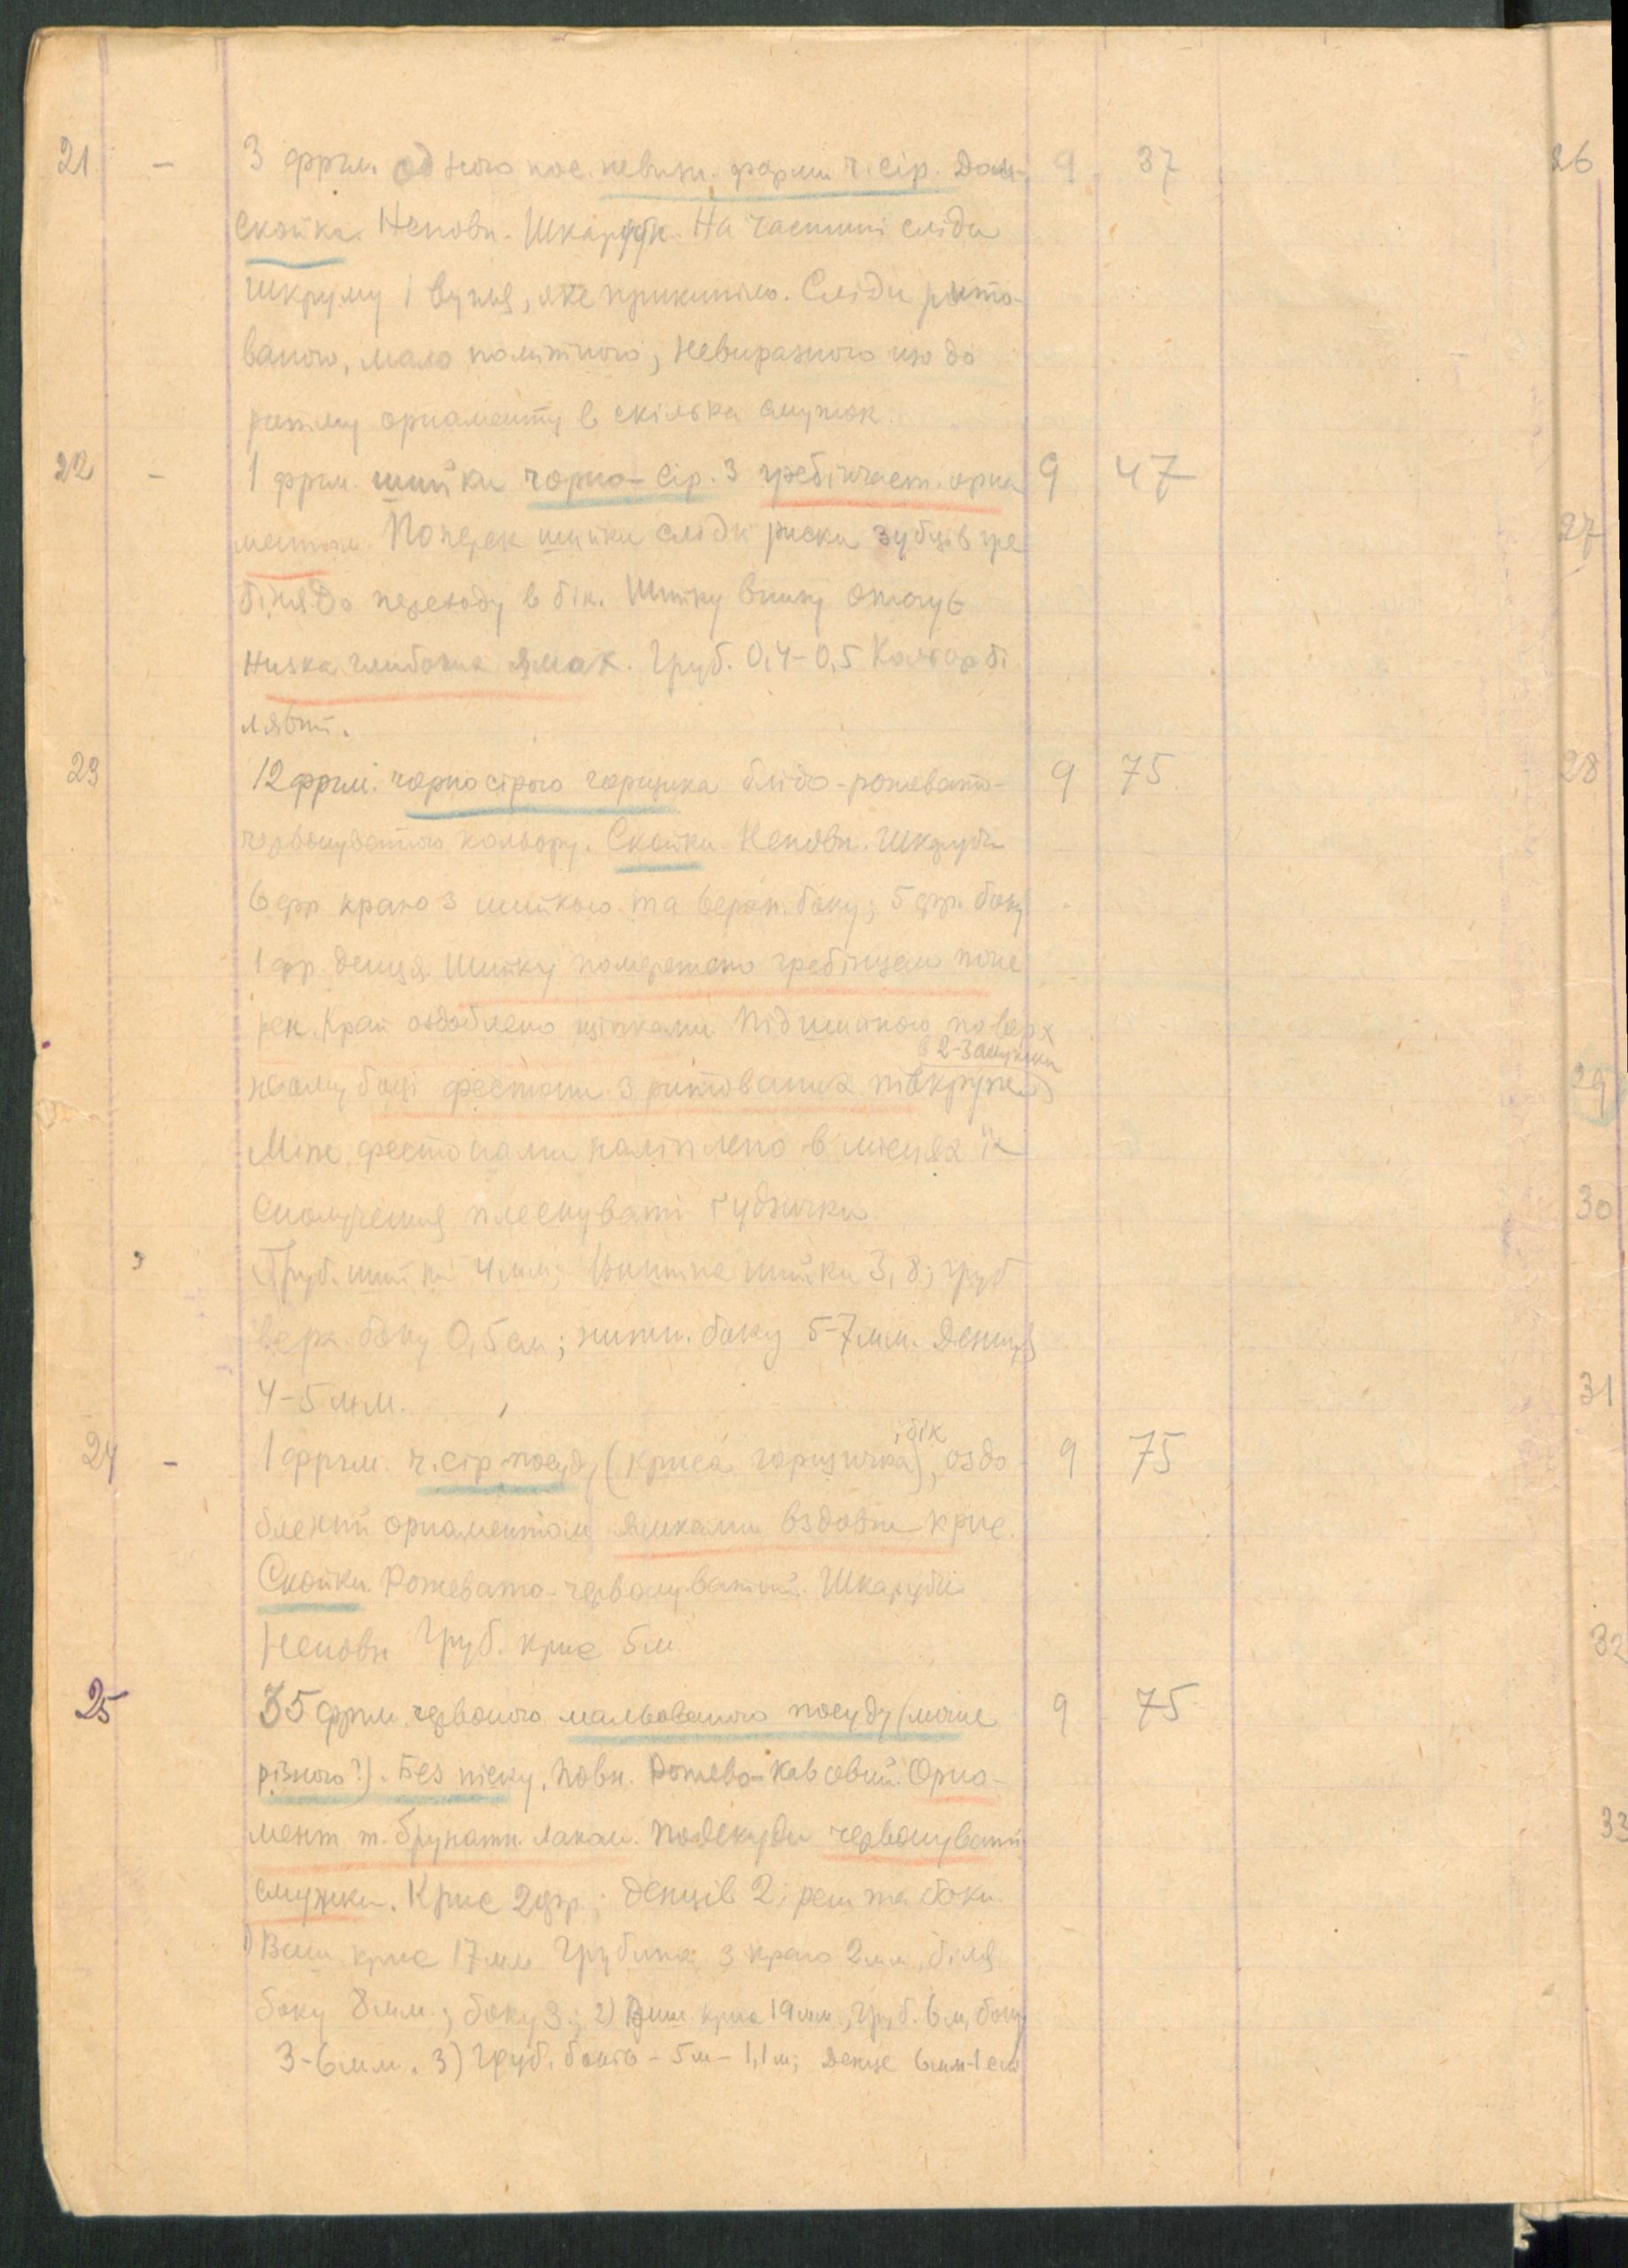 21 – 3 фргм. одного пос. невизн. форми ч. сір. Дом. 9 37
Скойка. Неповн. Шкаруп. На частині сліди
шкруму і вугля, яке прикипіло. Сліди рито-
ваного, мало помітного, невиразного що до
ритму орнаменту в скілька смужок.
22 – 1 фргм. шийки чорно-сір. з гребінчаст. орна 9 47
ментом. Поперек шийки сліди риски зубців гре
біня до переходу в бік. Шийку внизу оточує
низка глибоких ямок. Груб. 0,4-0,5 Кольор бі
лявий.
23 12 фргм. чорносірого горщика блідо-рожевато- 9 75
червонуватого кольору. Скойки. Неповн. Шкаруп
6 фр краю з шийкою та верхн. боку; 5 фр. боку
1 фр. денця. Шийку помережано гребінцем попе
рек. Край оздоблено щіпками. Під шийкою по верх
в 2-3 смужки
ньому боці фестони з ритованих півкружед
Між фестонами наліплено в місцях їх
сполучення плескуваті ґудзички.
Груб. шийки 4 мм; Вишина шийки 3,8; груб
верх. боку 0,5 см; нижн. боку 5-7 мм. Денця
4-5 мм.
і бік
24 – 1 фргм. ч. сір посуд, (криса горщичка), оздо 9 75
блений орнаментом ямками вздовж крис.
Скойки. Рожевато-червонуватий. Шкарупи
Неповн Груб. крис 5м
25 35 фргм. червоного мальованого посуду (може 9 75
різного?). Без піску. Повн. Рожево-кавовий. Орна-
мент т. брунатн. лаком. Подекуди червонуваті
смужки. Крис 2 фр; денців 2; решта боки.
1) Виш. крис 17мм Грубина з краю 2мм, біля
боку 8мм; боку 3; 2) Виш. крис 19мм, груб. 6м, боку
3-6мм. 3) Груб. боків - 5м - 1,1м; Денце 6мм-1см
26
27
28
29
30
31
32
33